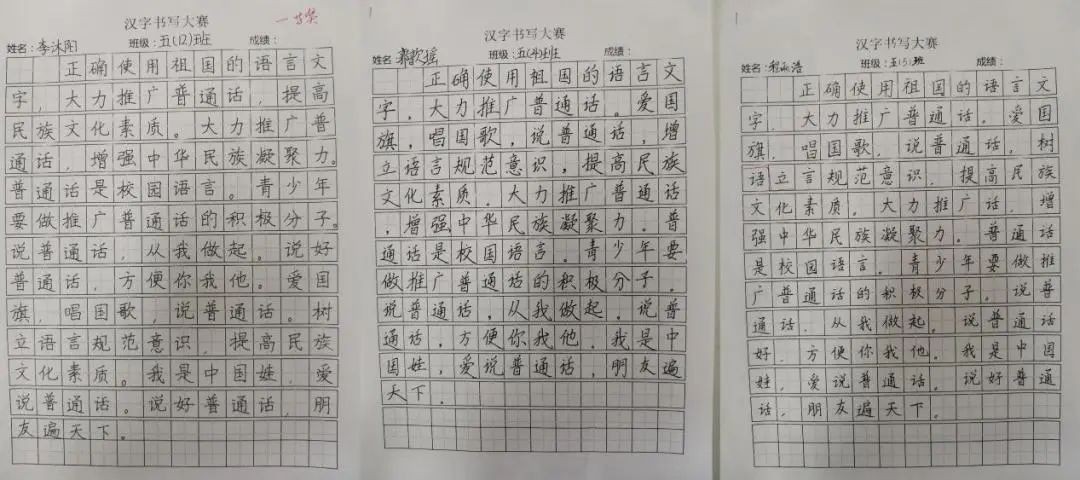 一等奖
汉字书写大赛
姓名：李沐阳 班级：五(12)班 成绩：
正确使用祖国的语言文
字，大力推广普通话，提高
民族文化素质。大力推广普
通话，增强中华民族凝聚力。
普通话是校园语言。青少年
要做推广普通话的积极分子。
说普通话，从我做起。说好
普通话，方便你我他。爱国
旗，唱国歌，说普通话。树
立语言规范意识，提高民族
文化素质。我是中国娃，爱
说普通话。说好普通话，朋
友遍天下。
汉字书写大赛
姓名：歆瑶 班级：五(4)班 成绩：
正确使用祖国的语言文
字，大力推广普通话。爱国
旗，唱国歌，说普通话，增
立语言规范意识，提高民族
文化素质．大力推广普通话
，增强中华民族凝聚力．普
通话是校国语言．青少年要
做推广普通话的积极分子．
说普通话，从我做起．说普
通话，方便你我他．我是中
国娃，爱说普通话，朋友遍
天下．
汉字书写大赛
姓名：程 浩 班级：五(5)班 成绩：
正确使用祖国的语言文
字．大力推广普通话．爱国
旗．唱国歌，说普通话，树
语立言规范意识．提高民族
文化素质．大力推广话．增
强中华民族凝聚力．普通话
是校园语言．青少年要做推
广普通话的积极分子．说普
通话．从我做起．说普通话
好．方便你我他．我是中国
娃，爱说普通话．说好普通
话．朋友遍天下．